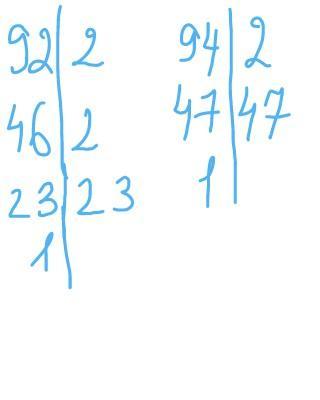 92 | 2
46 | 2
23 | 23
1 |
94 | 2
47 | 47
1 |